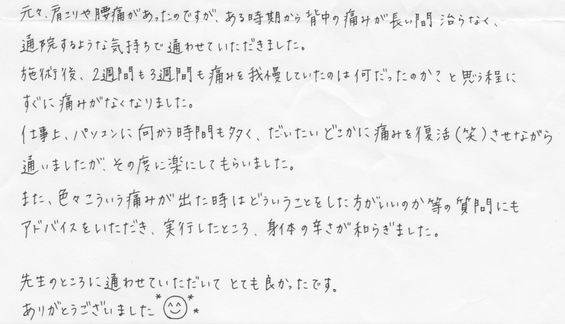 元々、肩こりや腰痛があったのですが、ある時期から背中の痛みが長い間治らなく、
通院するような気持ちで通わせていただきました。
施術後、2週間も3週間も痛みを我慢していたのは何だったのか?と思う程に
すぐに痛みがなくなりました。
仕事上、パソコンに向かう時間も多く、だいたいどこかに痛みを復活(笑)させながら
通いましたが、その度に楽にしてもらいました。
また、色々こういう痛みが出た時はどういうことをした方がいいのか等の質問にも
アドバイスをいただき、実行したところ、身体の辛さが和らぎました。
先生のところに通わせていただいてとても良かったです。
ありがとうございました